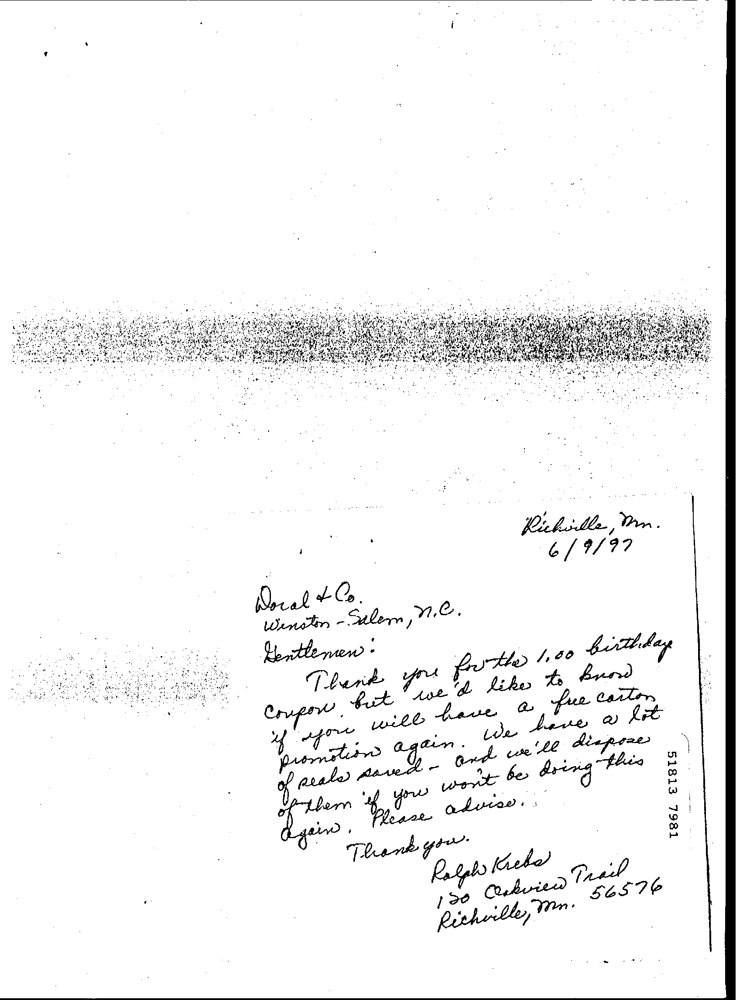 Richville, Mn.
6/9/97
Doral & Co.
Winston-Salem, N.C.
Gentlemen:
Thank you for the 1.00 birthday
coupon, but we'd like to know
if you will have a free carton
promotion again. We have a lot
of seals saved - and we'll dispose
of them if you won't be doing this
again. Please advise.
Thank you.
Ralph Krebs
120 Oakview Trail
Richville, Mn. 56576
51813 7981